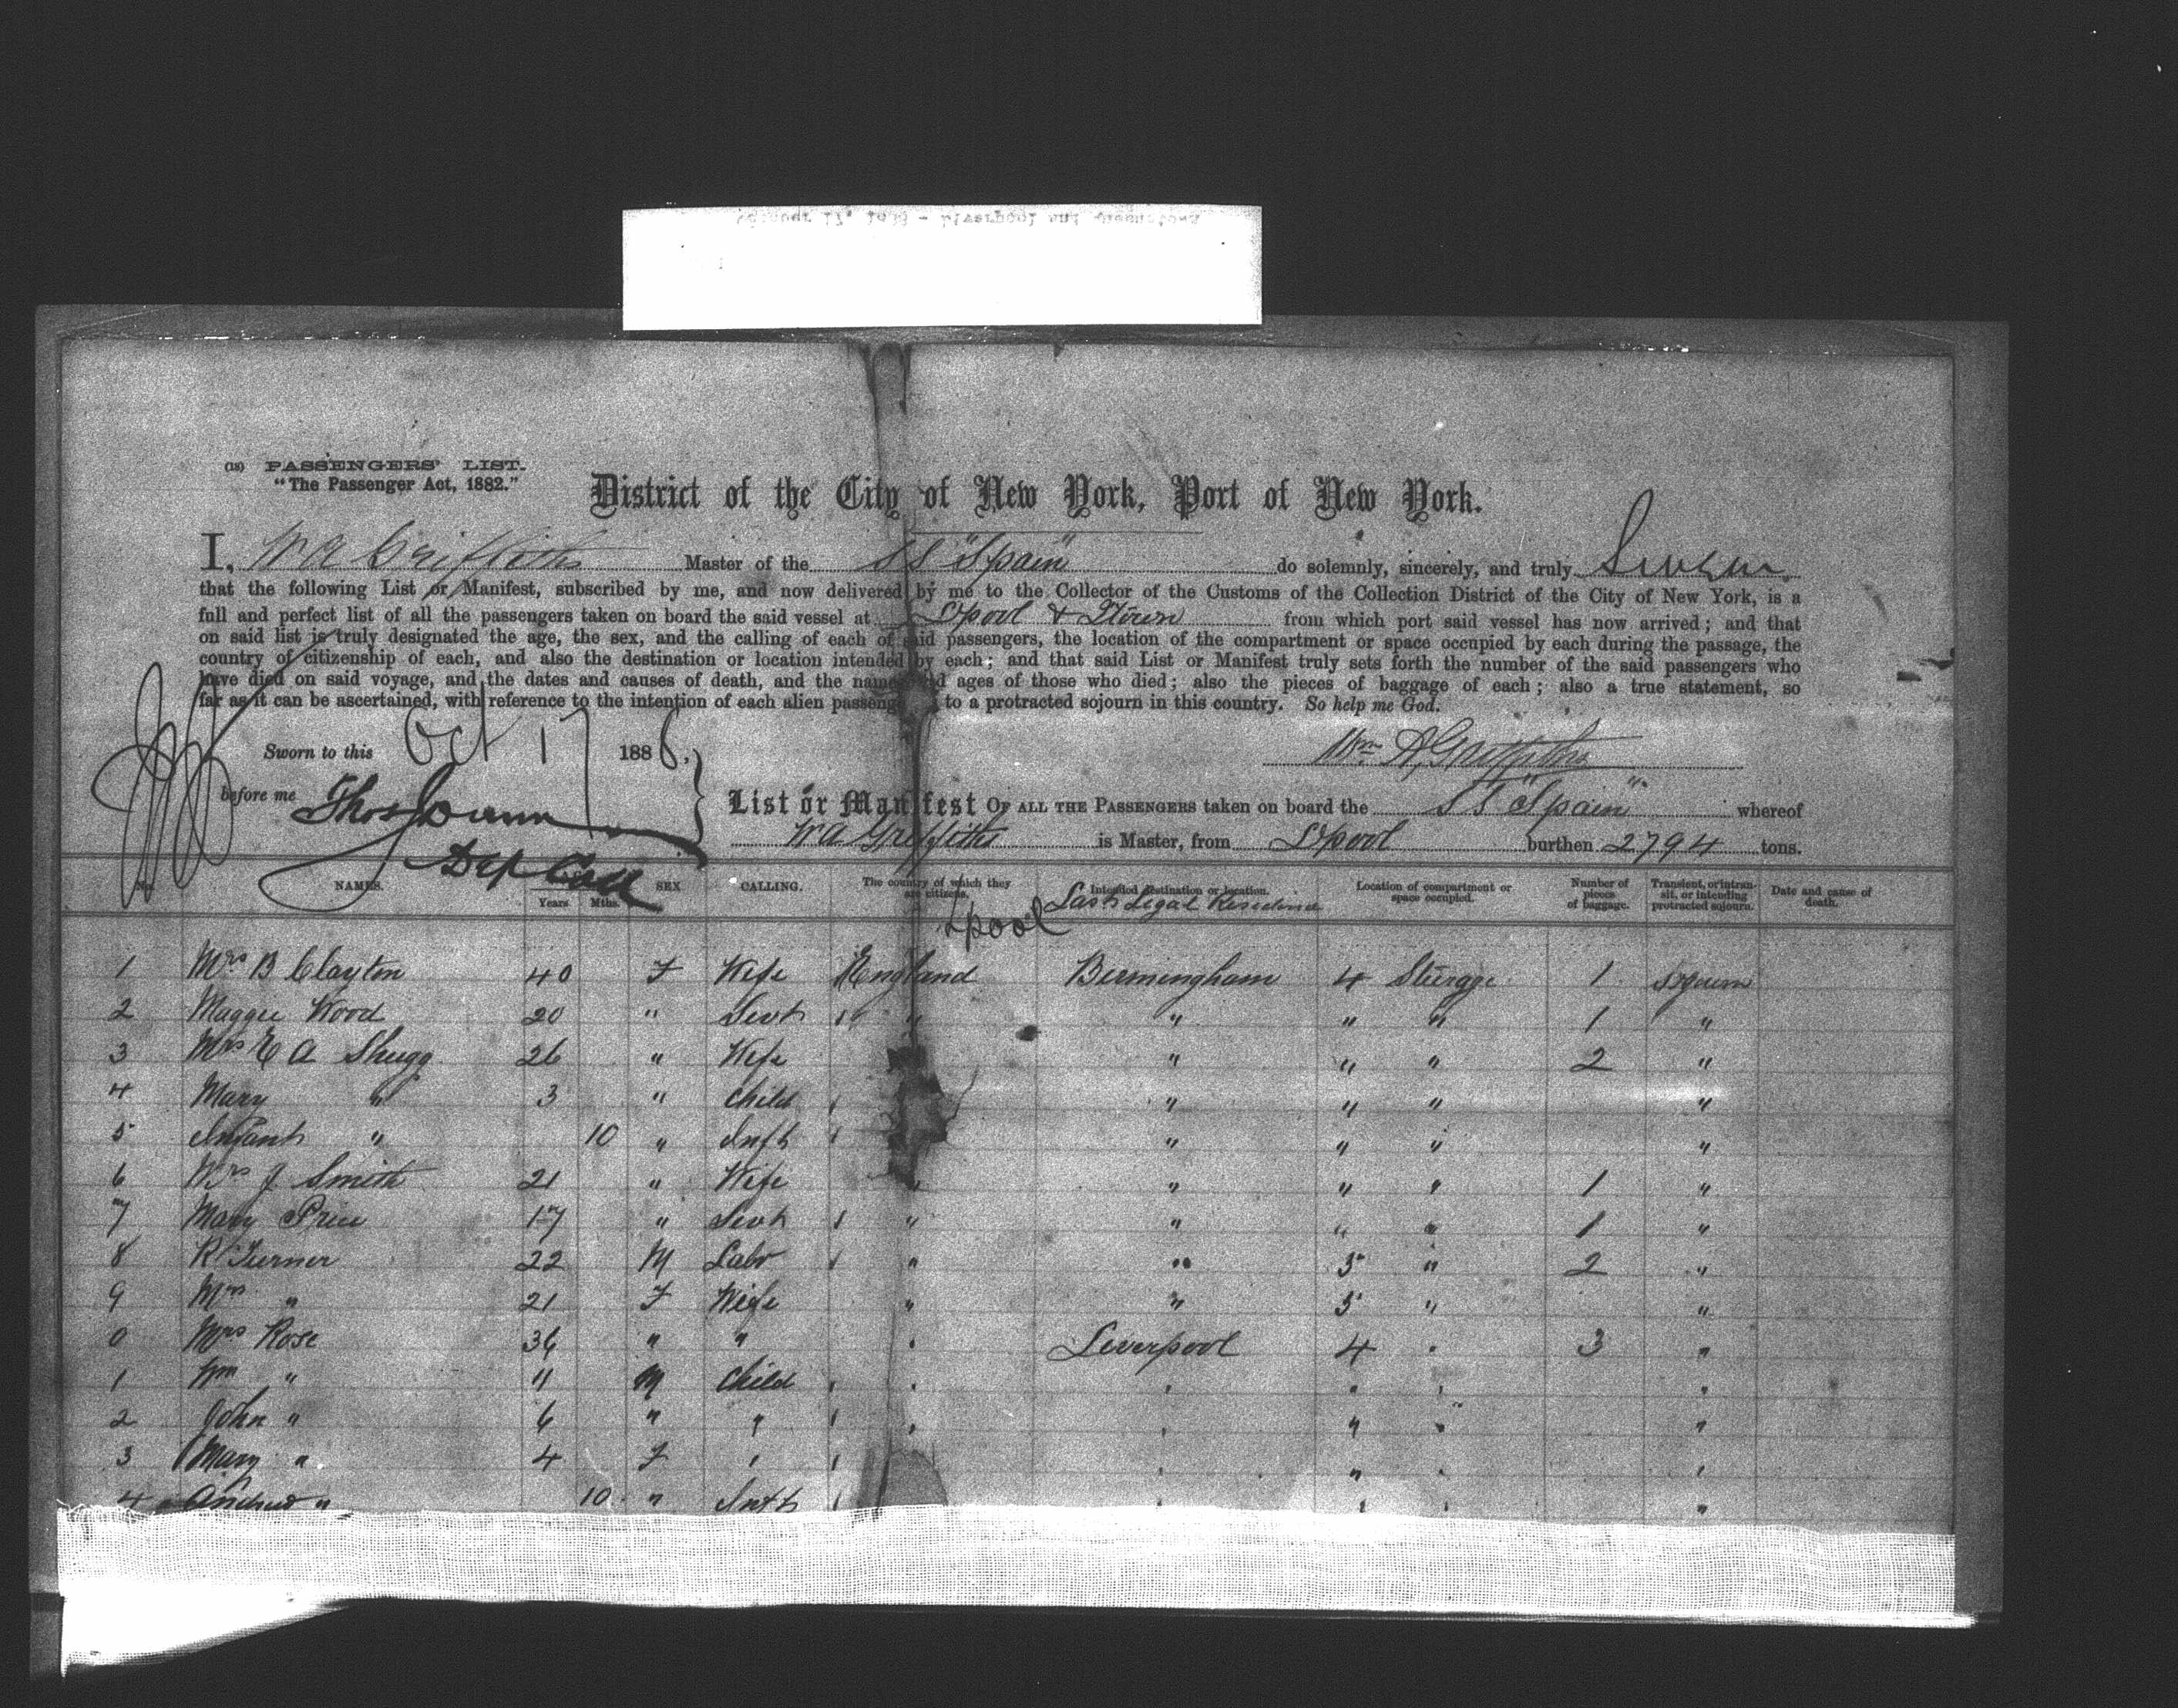 (18) PASSENGERS' LIST.
"The Passenger Act, 1882."
District of the City of New York, Port of New York.
I, W A Griffiths Master of the SS "Spain" do solemnly, sincerely, and truly Swear
that the following List or Manifest, subscribed by me, and now delivered by me to the Collector of the Customs of the Collection District of the City of New York, is a
full and perfect list of all the passengers taken on board the said vessel at L'pool & Q'town from which port said vessel has now arrived; and that
on said list is truly designated the age, the sex, and the calling of each of said passengers, the location of the compartment or space occupied by each during the passage, the
country of citizenship of each, and also the destination or location intended by each; and that said List or Manifest truly sets forth the number of the said passengers who
have died on said voyage, and the dates and causes of death, and the names and ages of those who died; also the pieces of baggage of each; also a true statement, so
far as it can be ascertained, with reference to the intention of each alien passenger to a protracted sojourn in this country. So help me God.
Sworn to this Oct 17 1886,
Wm A Griffiths
before me Thos
Dep Coll
List or Manifest OF ALL THE PASSENGERS taken on board the SS "Spain" whereof
W A Griffiths is Master, from L'pool burthen 2794 tons.
No. NAMES. Years Mths. SEX CALLING. The country of which they are citizens. Intended destination or location. Location of compartment or space occupied. Number of pieces of baggage. Transient, or in transit, or intending protracted sojourn. Date and cause of death.
Last Legal Residence
Lpool
1 Mrs B Clayton 40 F Wife England Birmingham 4 Steerage 1 Sojourn
2 Maggie Wood 20 " Sevt " " " " 1 "
3 Mrs E A Shugg 26 " Wife " " " 2 "
4 Mary " 3 " Child " " " "
5 Infant " 10 " Inft " " " "
6 Mrs J Smith 21 " Wife " " " " 1 "
7 Mary Price 17 " Sevt " " " " 1 "
8 R Turner 22 M Labr " " 5 " 2 "
9 Mrs " 21 F Wife " " 5 " "
0 Mrs Rose 36 " " " Liverpool 4 " 3 "
1 Wm " 11 M Child " " " " "
2 John " 6 " " " " " " "
3 Mary " 4 F " " " " "
4 Andrew " 10 " Inft " " " "